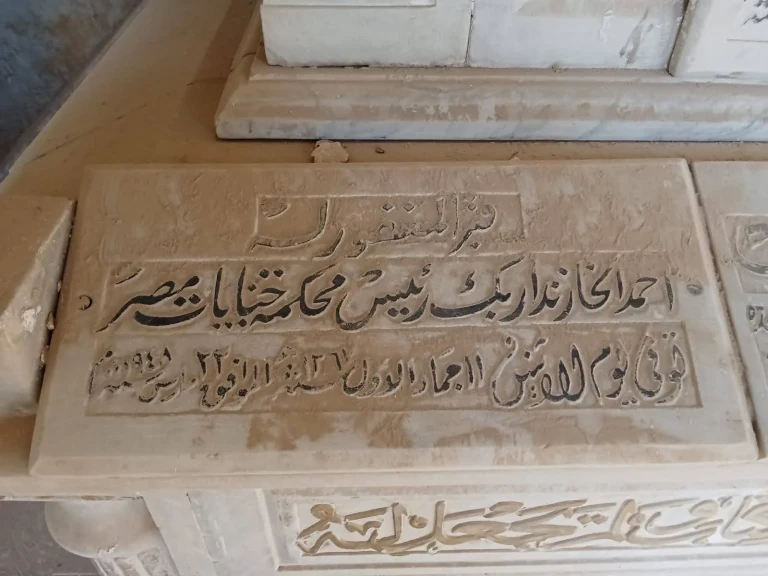 قبر المغفور له
احمد الخازندار بك رئيس محكمة جنايات مصر
توفى يوم الاثنين ١١ جماد الاول سنة ١٣٦٧ الموافق ٢٢ مارس سنة ١٩٤٨ م
نجعل له